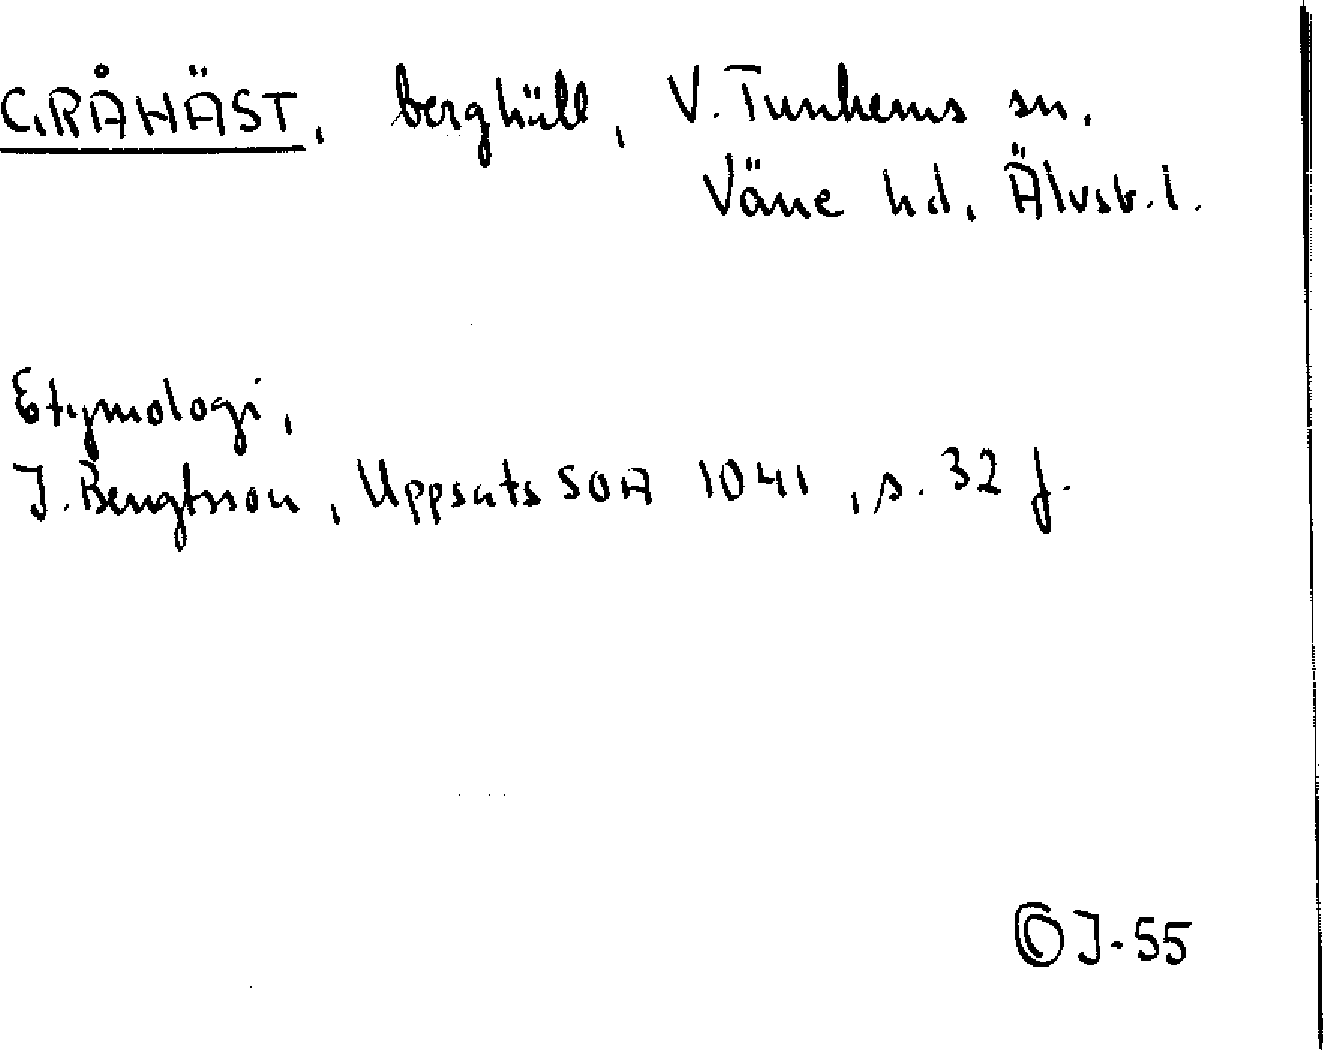 GRÅHÄST, berghäll, V. Tunhems sn.
Väne hd, Älvsb. l.
Etymologi,
J. Bengtsson, Uppsats SOA 1041, s. 32 f.
©J-55